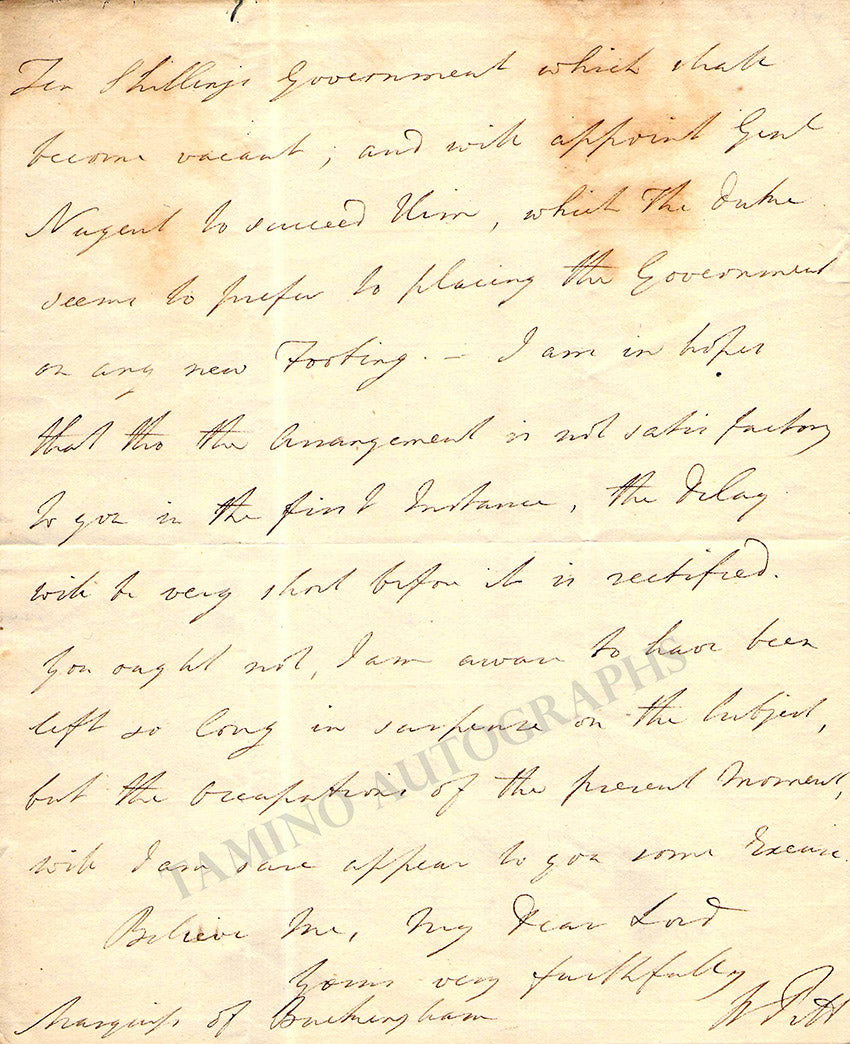 Ten Shillings Government which shall
become vacant; and will appoint Genl
Nugent to succeed Him, which The Duke
seems to prefer to placing the Government
on any new Footing. — I am in hopes
that tho the Arrangement is not satisfactory
to you in the first Instance, the Delay
will be very short before it is rectified.
You ought not, I am aware to have been
left so long in suspense on the Subject,
but the Occupations of the present Moment,
will I am sure appear to you some Excuse.
Believe Me, My Dear Lord
Yours very faithfully
W Pitt
Marquiss of Buckingham
TAMINO AUTOGRAPHS